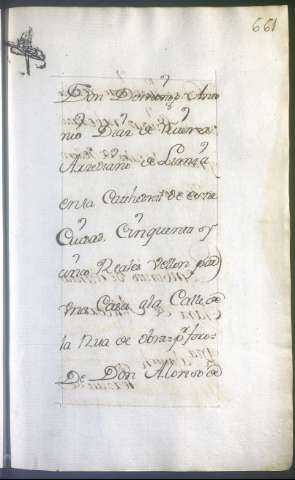 661
Don Domingo Anto
nio Diaz de
Arcediano de
en la Cathedral de esta
Ciudad. Cinquenta y
cinco Reales Vellon por
vna Casa qla Calle de
la Rua de obra pª foro:
De Don Alonso de